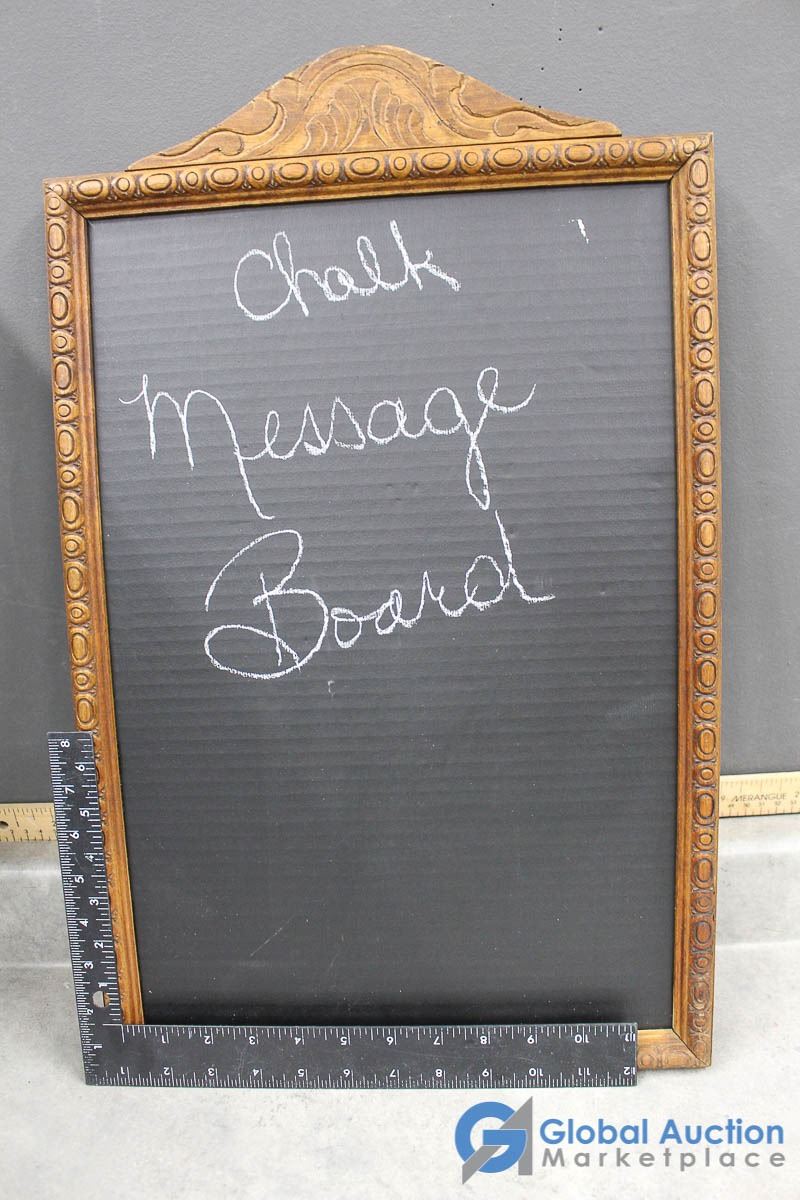 Chalk
Message
Board
8 7 6 5 4 3 2 1
6 5 4 3 2 1
MERANGUE
1 2 3 4 5 6 7 8 9 10 11
1 2 3 4 5 6 7 8 9 10 11 12
Global Auction
Marketplace